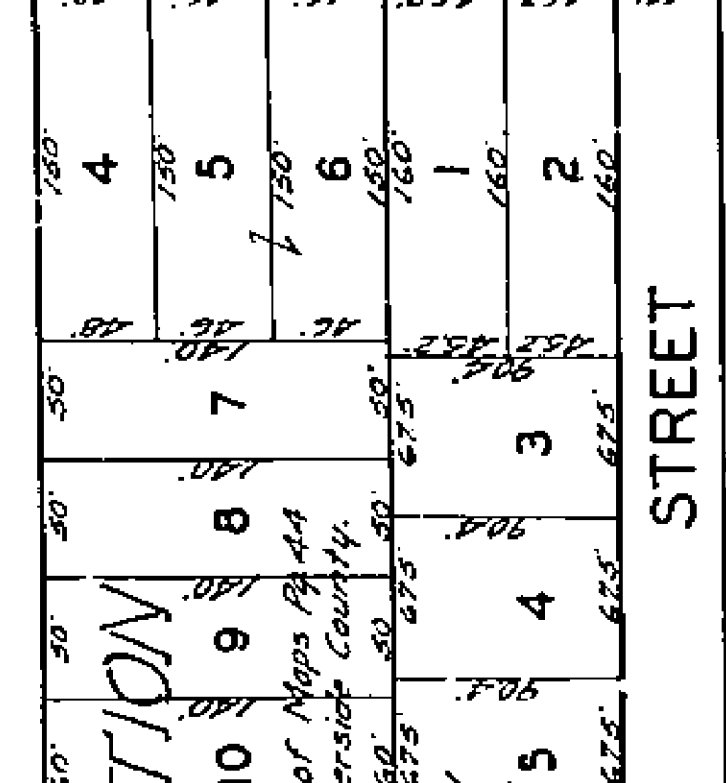 160' 4 150' 5 150' 6 150' 160' 1 160' 2 160'
48' 46' 46' 45.2 45.2
50' 140' 7 50' 67.5 90.4' 3 67.5'
50' 140' 8 50' 67.5 90.4' 4 67.5'
50' 140' 9 50 90.4'
140' 10 67.5 5 67.5'
TION
of Maps Pg 44
erside County.
STREET